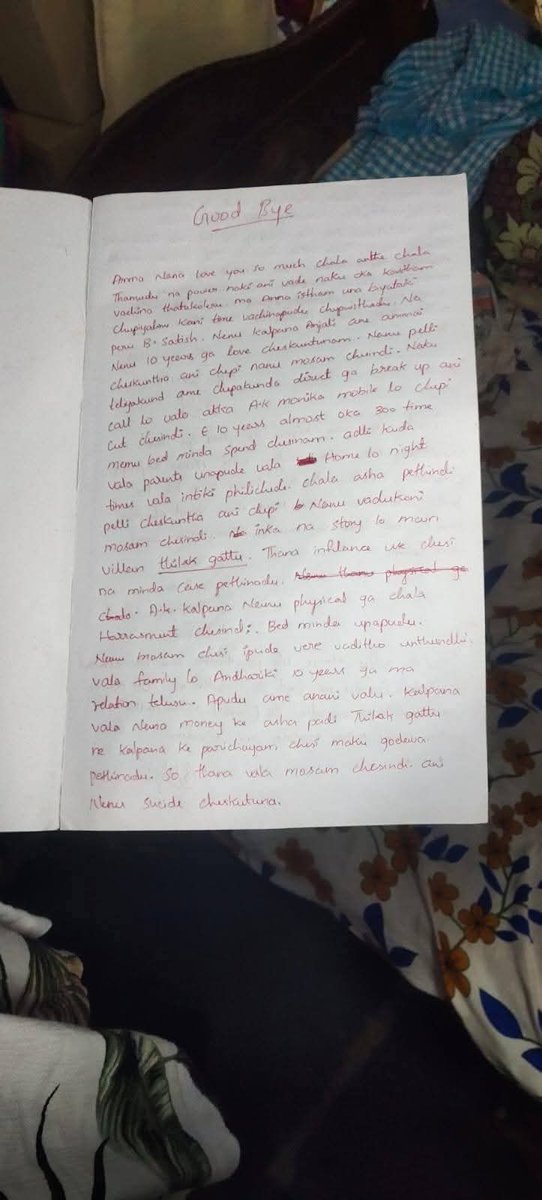 Good Bye
Amma Nana love you so much chala ante chala
Thamudu na power naki ani vade naku oka
vachina thatukoleru. ma Amma istham una byataki
Chupiyaleru kani time vachinapudu chupinsthadu. Na
peru B. Satish. Nenu Kalpana Anjali ane ammai
Nenu 10 years ga love cheskuntunam. Nanu pelli
cheskuntha ani chepi nanu mosam chesindi. Naku
teliyakund ame chepakunda direct ga break up ani
call lo valo akka A.K monika mobile lo chepi
Cut chesindi. E 10 years almost oka 300 time
memu bed minda spend chesinam. adhi kuda
vala parents unapude vala Home lo night
times vala intiki philichedi. chala asha pethindi
pelli cheskuntha ani chepi Nanu vadukoni
mosam chesindi. inka na story lo main
villein thilak gattu. Thana inflance use chesi
na minda case pethinadu. Nenu thanu physical ga
chala. A.K. Kalpana Nannu physical ga chala
Harrasment chesindi. Bed minda unapudu.
Nanu mosam chesi ipudu vere vaditho unthundhi.
vala family lo Andhariki 10 years ga ma
relation telusu. Apudu ame anani valu. Kalpana
vala Nana money ke asha padi Thilak gattu
ne Kalpana ke parichayam chesi maku godawa
pethinadu. So thana vala mosam chesindi. ani
Nenu sucide cheskutuna.